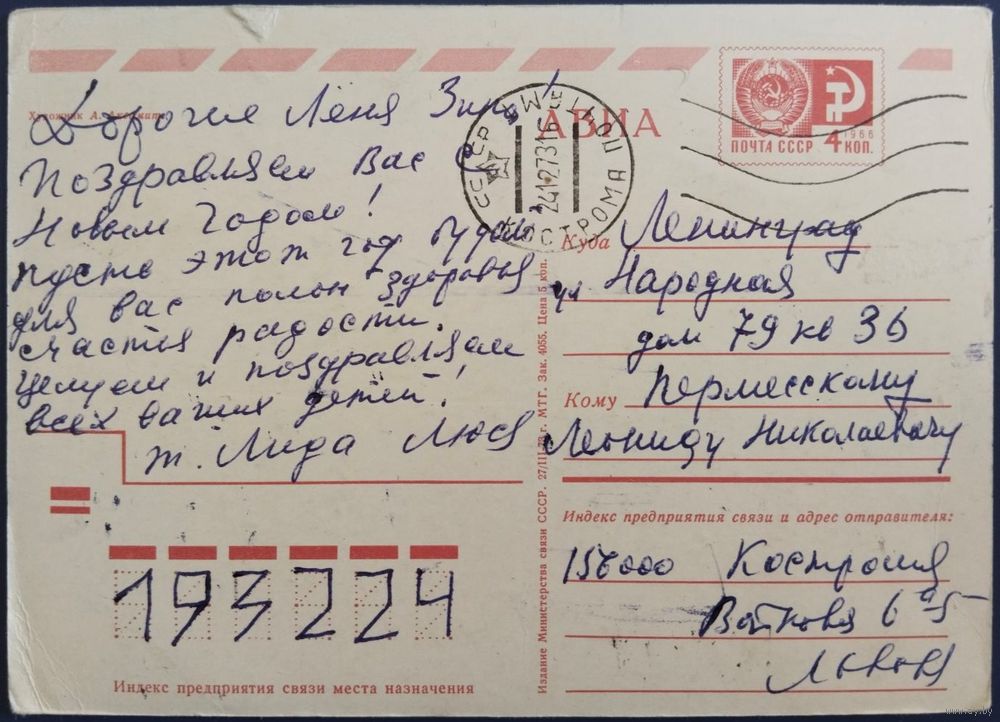 Художник А.
Дорогие Лёня Зина!
Поздравляем Вас с
Новым Годом!
пусть этот год будет
для вас полон здоровья
счастья радости.
целуем и поздравляем
всех ваших детей!
т. Лида Люся
АВИА
СССР КОСТРОМА ПОЧТАМТ
24127316
ПОЧТА СССР 4 КОП.
1966
Куда Ленинград
ул Народная
дом 79 кв 36
Кому Пермесскому
Леониду Николаевичу
Индекс предприятия связи и адрес отправителя:
156000 Кострома
6а-5
Издание Министерства связи СССР. 27/III-73 г. МТГ. Зак. 4055. Цена 5 коп.
193224
Индекс предприятия связи места назначения